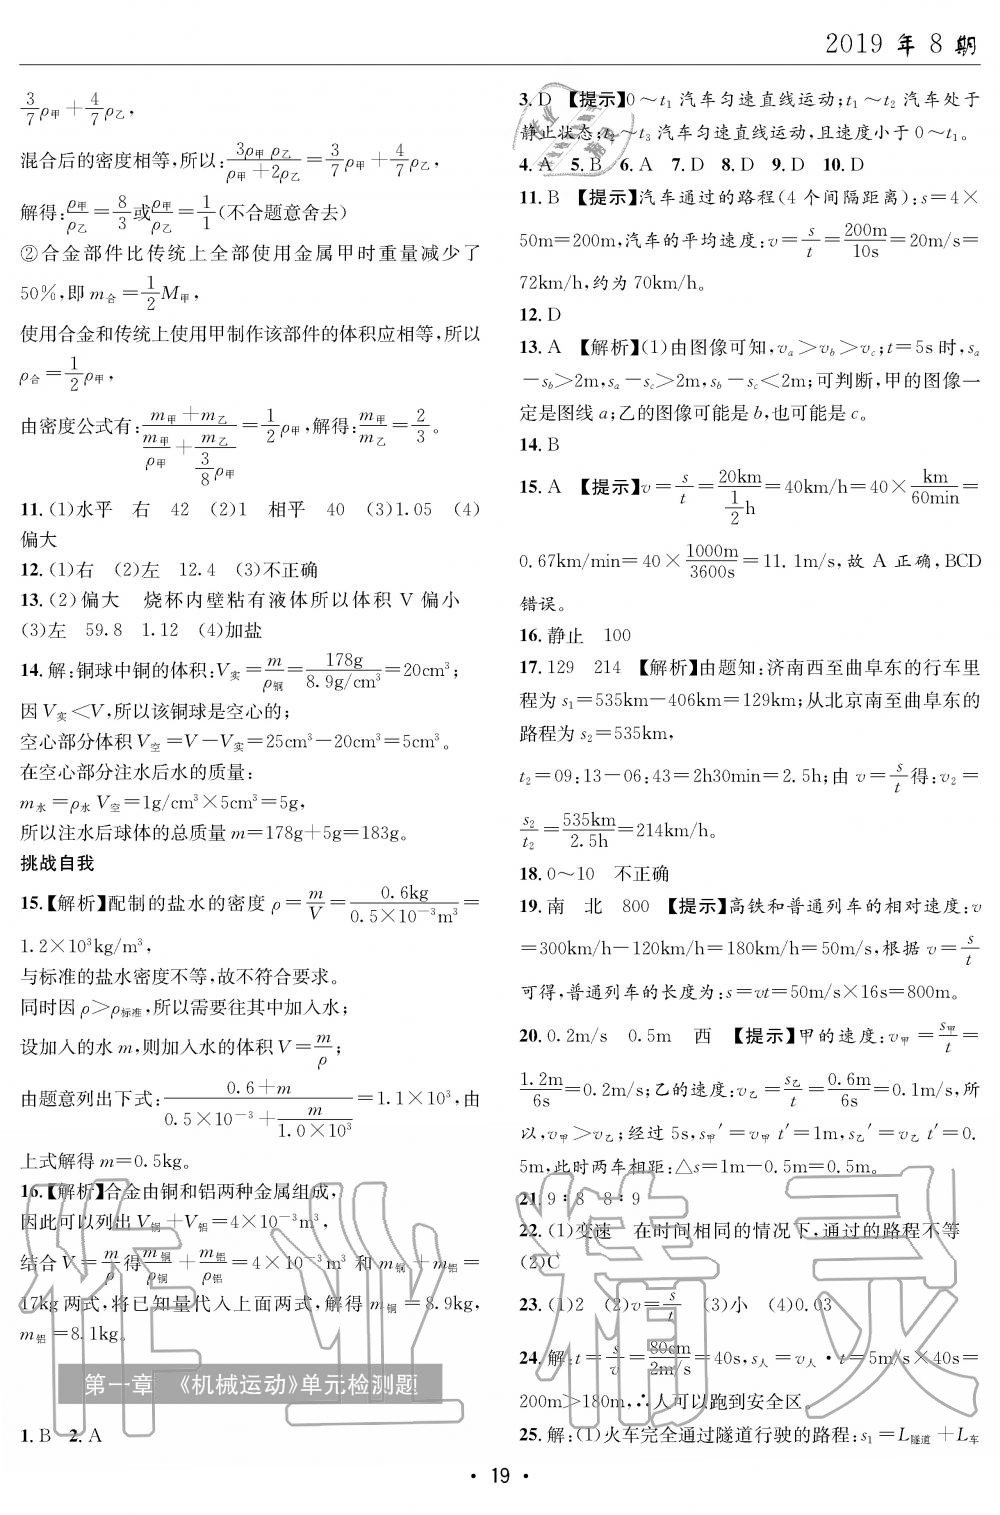 2019 年 8 期
3/7 ρ甲 + 4/7 ρ乙,
混合后的密度相等,所以: 3ρ甲ρ乙/(ρ甲+2ρ乙) = 3/7 ρ甲 + 4/7 ρ乙,
解得: ρ甲/ρ乙 = 8/3 或 ρ甲/ρ乙 = 1/1 (不合题意舍去)
②合金部件比传统上全部使用金属甲时重量减少了
50%,即 m合 = 1/2 M甲,
使用合金和传统上使用甲制作该部件的体积应相等,所以
ρ合 = 1/2 ρ甲,
由密度公式有: (m甲+m乙)/(m甲/ρ甲 + m乙/(3/8 ρ甲)) = 1/2 ρ甲,解得: m甲/m乙 = 2/3。
11.(1)水平 右 42 (2)1 相平 40 (3)1.05 (4)
偏大
12.(1)右 (2)左 12.4 (3)不正确
13.(2)偏大 烧杯内壁粘有液体所以体积 V 偏小
(3)左 59.8 1.12 (4)加盐
14.解:铜球中铜的体积:V实 = m/ρ铜 = 178g/8.9g/cm³ = 20cm³;
因 V实<V,所以该铜球是空心的;
空心部分体积 V空=V-V实=25cm³-20cm³=5cm³。
在空心部分注水后水的质量:
m水=ρ水V空=1g/cm³×5cm³=5g,
所以注水后球体的总质量 m=178g+5g=183g。
挑战自我
15.【解析】配制的盐水的密度 ρ = m/V = 0.6kg/0.5×10⁻³m³ =
1.2×10³kg/m³,
与标准的盐水密度不等,故不符合要求。
同时因 ρ>ρ标准,所以需要往其中加入水;
设加入的水 m,则加入水的体积 V = m/ρ;
由题意列出下式: (0.6+m)/(0.5×10⁻³ + m/1.0×10³) = 1.1×10³,由
上式解得 m=0.5kg。
16.【解析】合金由铜和铝两种金属组成,
因此可以列出 V铜+V铝=4×10⁻³m³,
结合 V = m/ρ 得 m铜/ρ铜 + m铝/ρ铝 = 4×10⁻³m³ 和 m铜+m铝=
17kg 两式,将已知量代入上面两式,解得 m铜=8.9kg,
m铝=8.1kg。
第一章 《机械运动》单元检测题
1.B 2.A
3.D 【提示】0~t₁ 汽车匀速直线运动;t₁~t₂ 汽车处于
静止状态;t₂~t₃ 汽车匀速直线运动,且速度小于 0~t₁。
4.A 5.B 6.A 7.D 8.D 9.D 10.D
11.B 【提示】汽车通过的路程(4 个间隔距离):s=4×
50m=200m,汽车的平均速度:v = s/t = 200m/10s = 20m/s=
72km/h,约为 70km/h。
12.D
13.A 【解析】(1)由图像可知,va>vb>vc;t=5s 时,sa
-sb>2m,sa-sc>2m,sb-sc<2m;可判断,甲的图像一
定是图线 a;乙的图像可能是 b,也可能是 c。
14.B
15.A 【提示】v = s/t = 20km/(1/2 h) = 40km/h=40× km/60min =
0.67km/min=40× 1000m/3600s = 11.1m/s,故 A 正确,BCD
错误。
16.静止 100
17.129 214 【解析】由题知:济南西至曲阜东的行车里
程为 s₁=535km-406km=129km;从北京南至曲阜东的
路程为 s₂=535km,
t₂=09:13-06:43=2h30min=2.5h;由 v = s/t 得:v₂=
s₂/t₂ = 535km/2.5h = 214km/h。
18.0~10 不正确
19.南 北 800 【提示】高铁和普通列车的相对速度:v
=300km/h-120km/h=180km/h=50m/s,根据 v = s/t
可得,普通列车的长度为:s=vt=50m/s×16s=800m。
20.0.2m/s 0.5m 西 【提示】甲的速度:v甲 = s甲/t =
1.2m/6s = 0.2m/s;乙的速度:v乙 = s乙/t = 0.6m/6s = 0.1m/s,所
以,v甲>v乙;经过 5s,s甲′=v甲t′=1m,s乙′=v乙t′=0.
5m,此时两车相距:△s=1m-0.5m=0.5m。
21.9∶8 8∶9
22.(1)变速 在时间相同的情况下,通过的路程不等
(2)C
23.(1)2 (2)v = s/t (3)小 (4)0.03
24.解:t = s/v = 80cm/2m/s = 40s,s人=v人·t=5m/s×40s=
200m>180m,∴人可以跑到安全区。
25.解:(1)火车完全通过隧道行驶的路程:s₁=L隧道+L车
· 19 ·
作业精灵